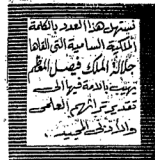 نستهل هذا العدد بالكلمة
الملكية السامية التي القاها
جلالة الملك فيصل المعظم
يهيب بالامة فيها الى
تقدير تراثهم العلمي
والأدبي المجيد.